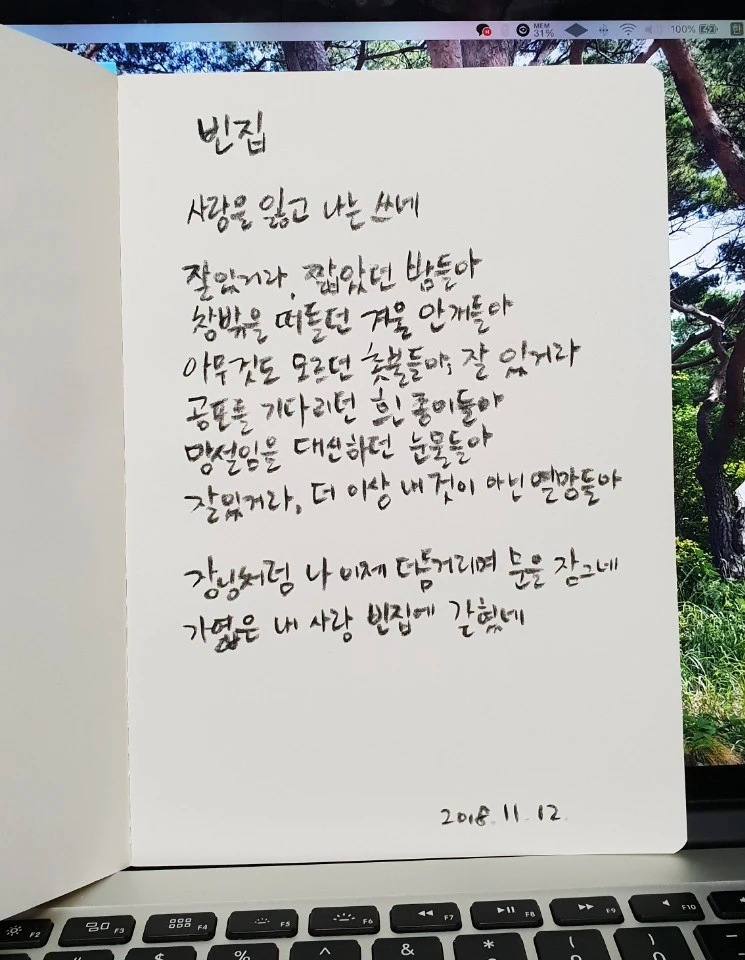 MEM
31%
100%
한
빈집
사랑을 잃고 나는 쓰네
잘있거라, 짧았던 밤들아
창밖을 떠돌던 겨울 안개들아
아무것도 모르던 촛불들아, 잘 있거라
공포를 기다리던 흰 종이들아
망설임을 대신하던 눈물들아
잘있거라, 더 이상 내 것이 아닌 열망들아
장님처럼 나 이제 더듬거리며 문을 잠그네
가엾은 내 사랑 빈집에 갇혔네
2018.11.12.
F2 F3 F4 F5 F6 F7 F8 F9 F10
$ % ^ & * ( )